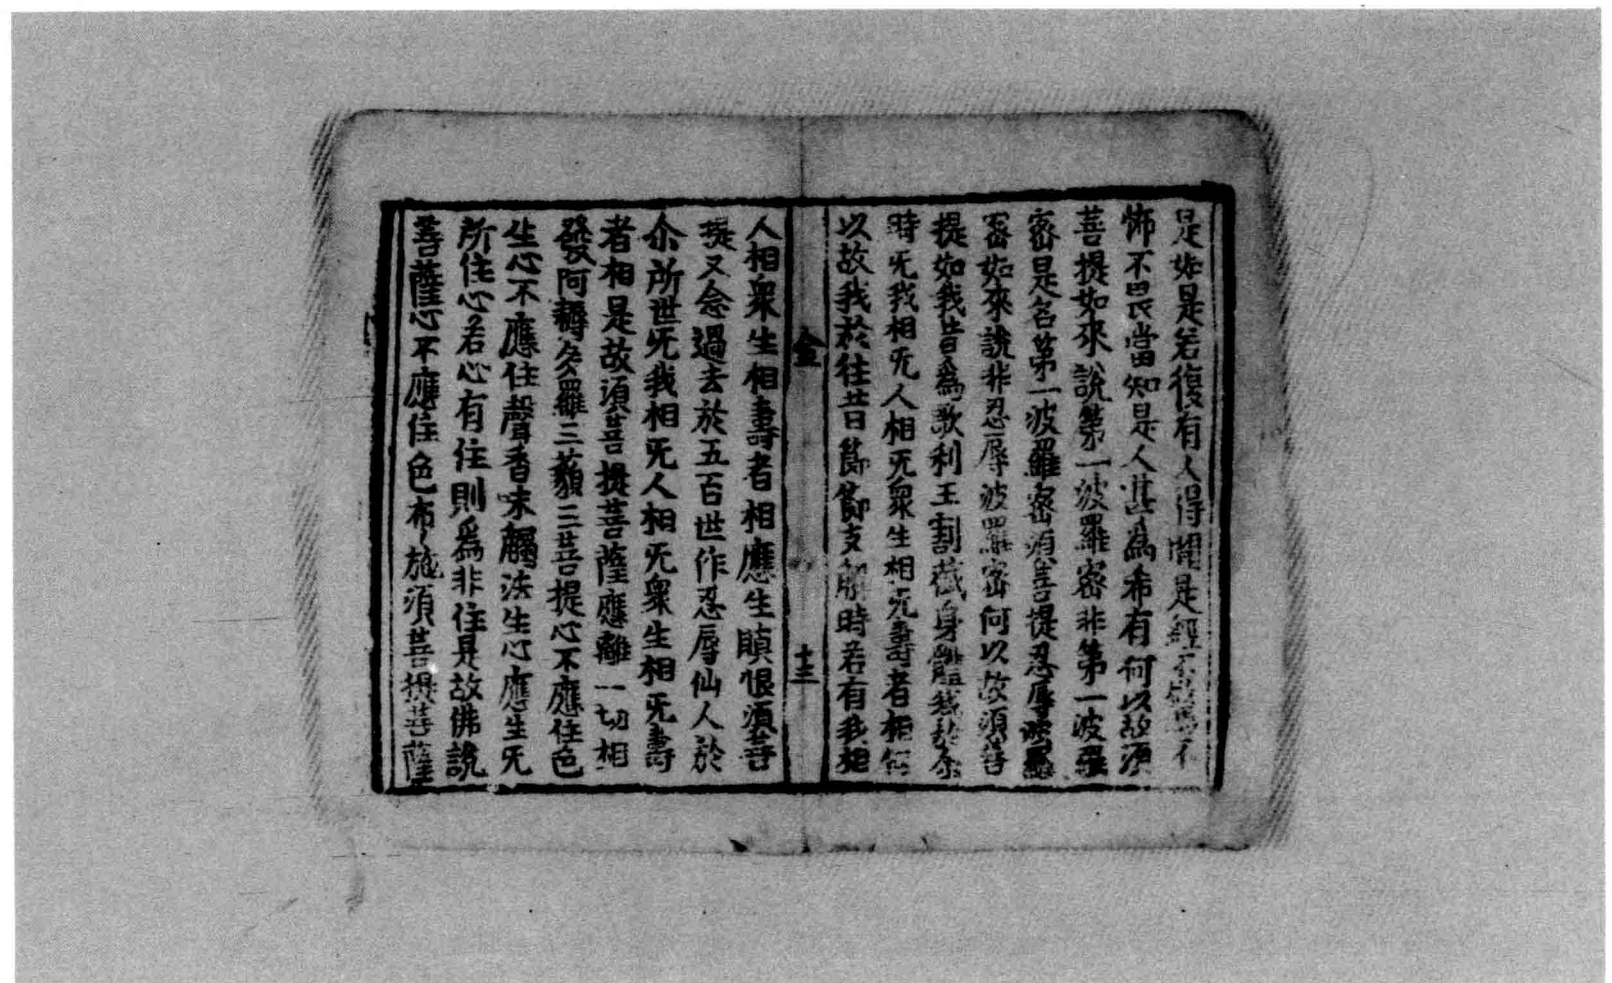 是如是若復有人得聞是經不驚不
怖不畏當知是人甚爲希有何以故須
菩提如來說第一波羅密非第一波羅
密是名第一波羅密須菩提忍辱波羅
密如來說非忍辱波羅密何以故須菩
提如我昔爲歌利王割截身體我於尒
時旡我相旡人相旡衆生相旡壽者相何
以故我於往昔節節支解時若有我相
金
十三
人相衆生相壽者相應生瞋恨須菩
提又念過去於五百世作忍辱仙人於
尒所世旡我相旡人相旡衆生相旡壽
者相是故須菩提菩薩應離一切相
發阿耨多羅三藐三菩提心不應住色
生心不應住聲香味觸法生心應生旡
所住心若心有住則爲非住是故佛說
菩薩心不應住色布施須菩提菩薩